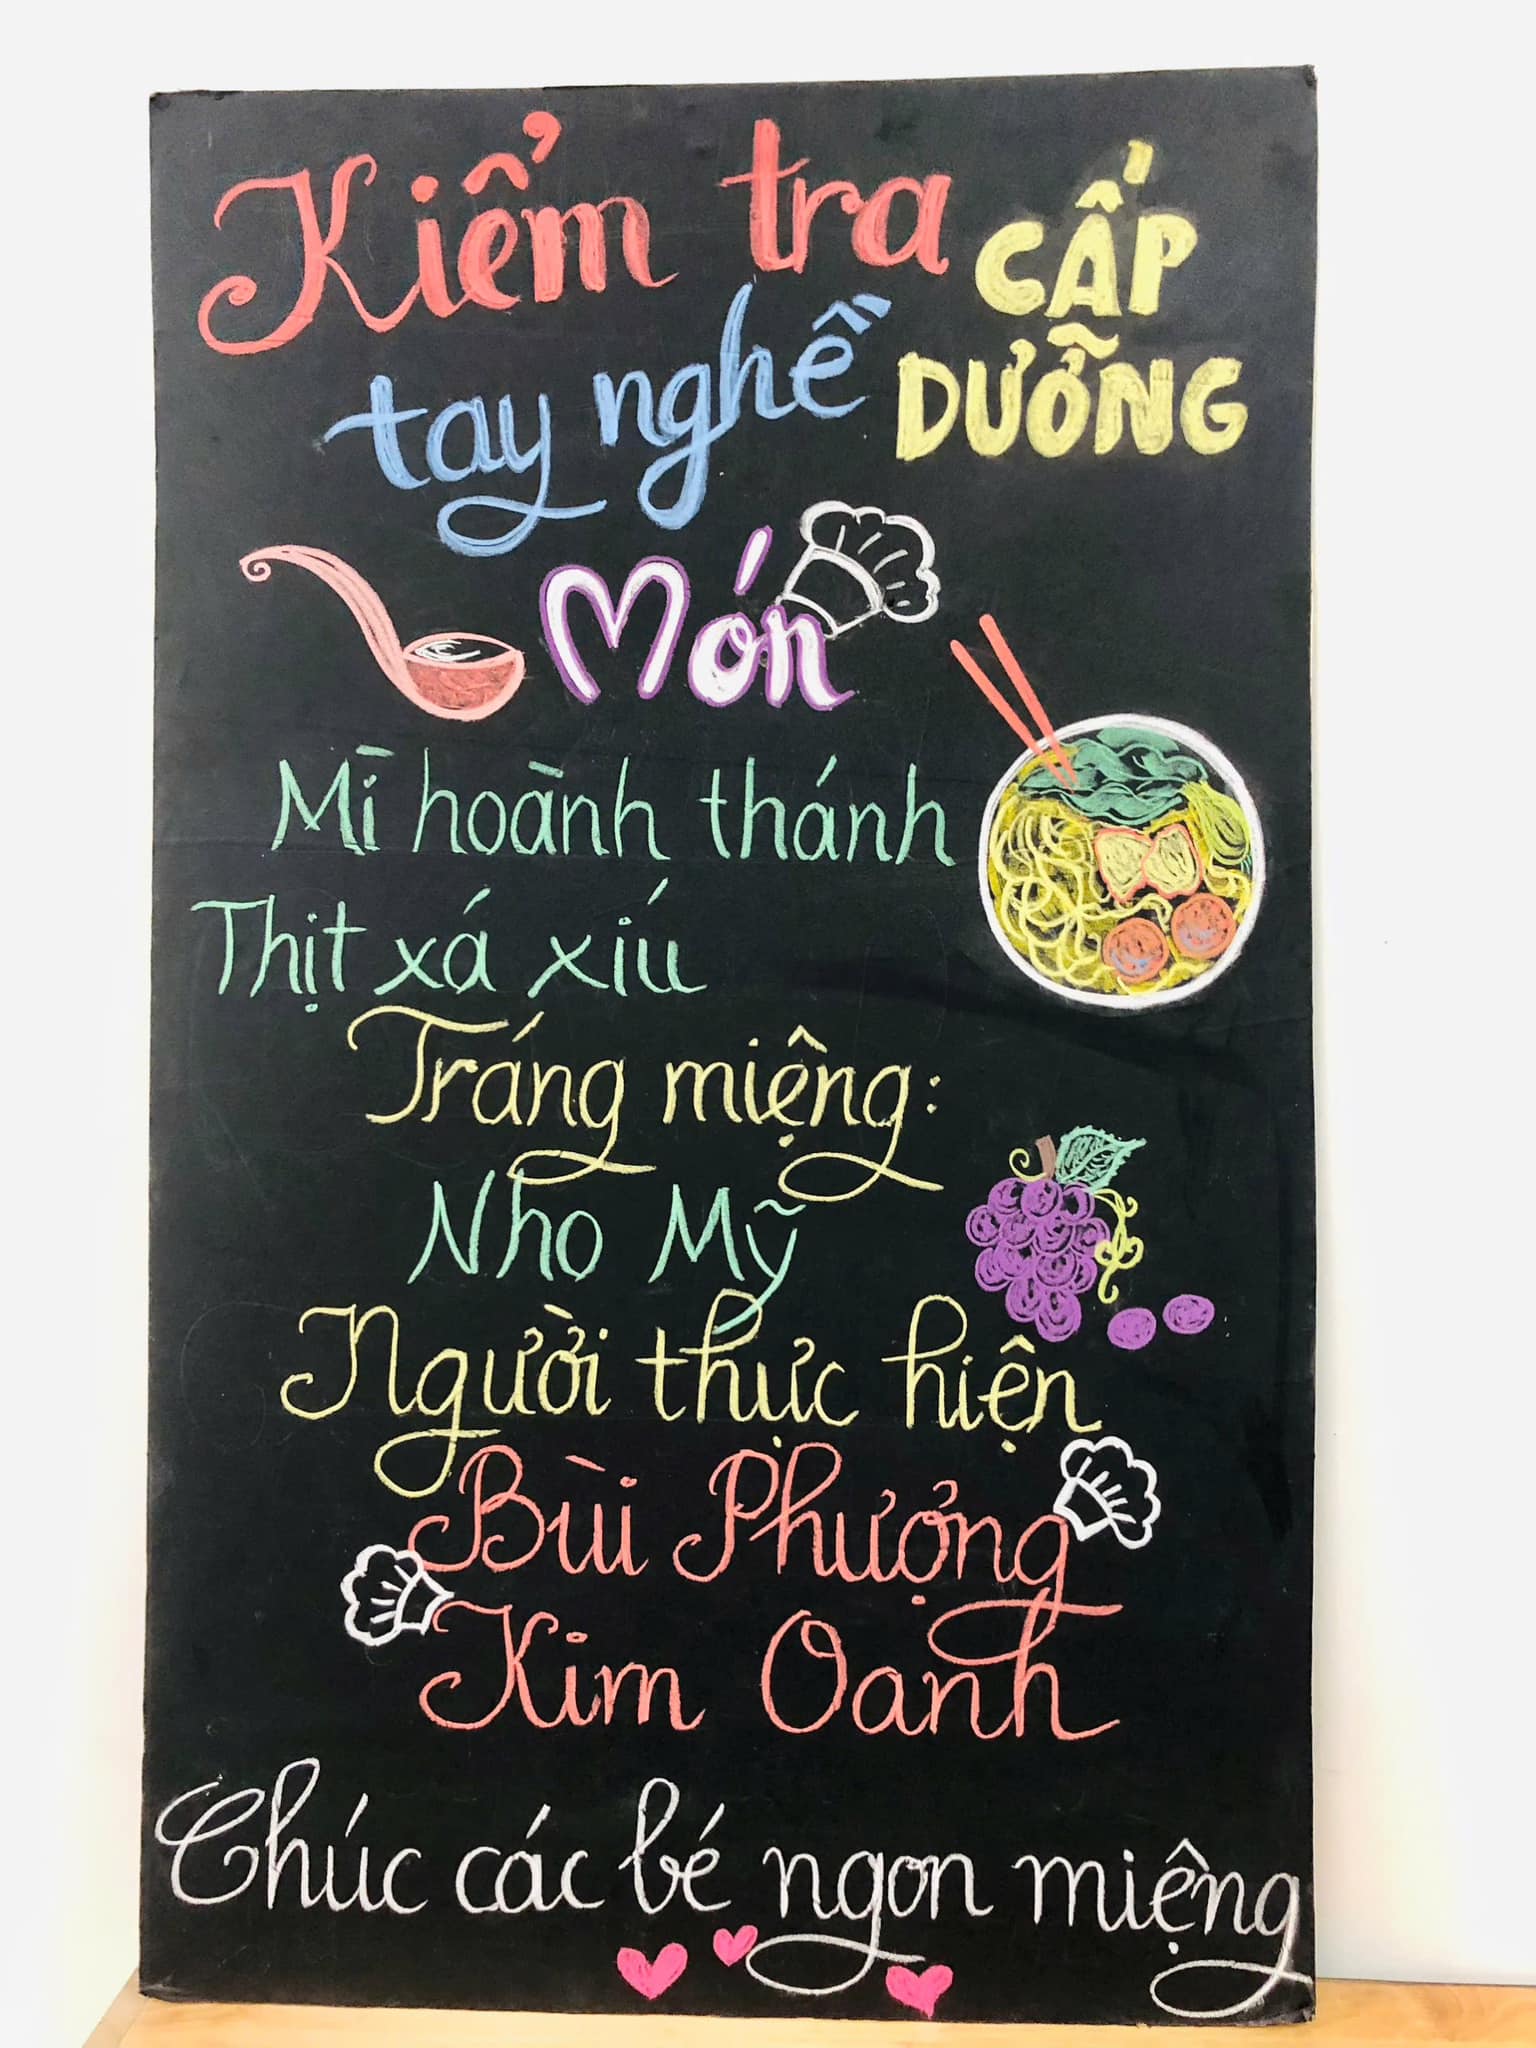 Kiểm tra
tay nghề
CẤP
DƯỠNG
Món
Mì hoành thánh
Thịt xá xíu
Tráng miệng:
Nho Mỹ
Người thực hiện
Bùi Phượng
Kim Oanh
Chúc các bé ngon miệng